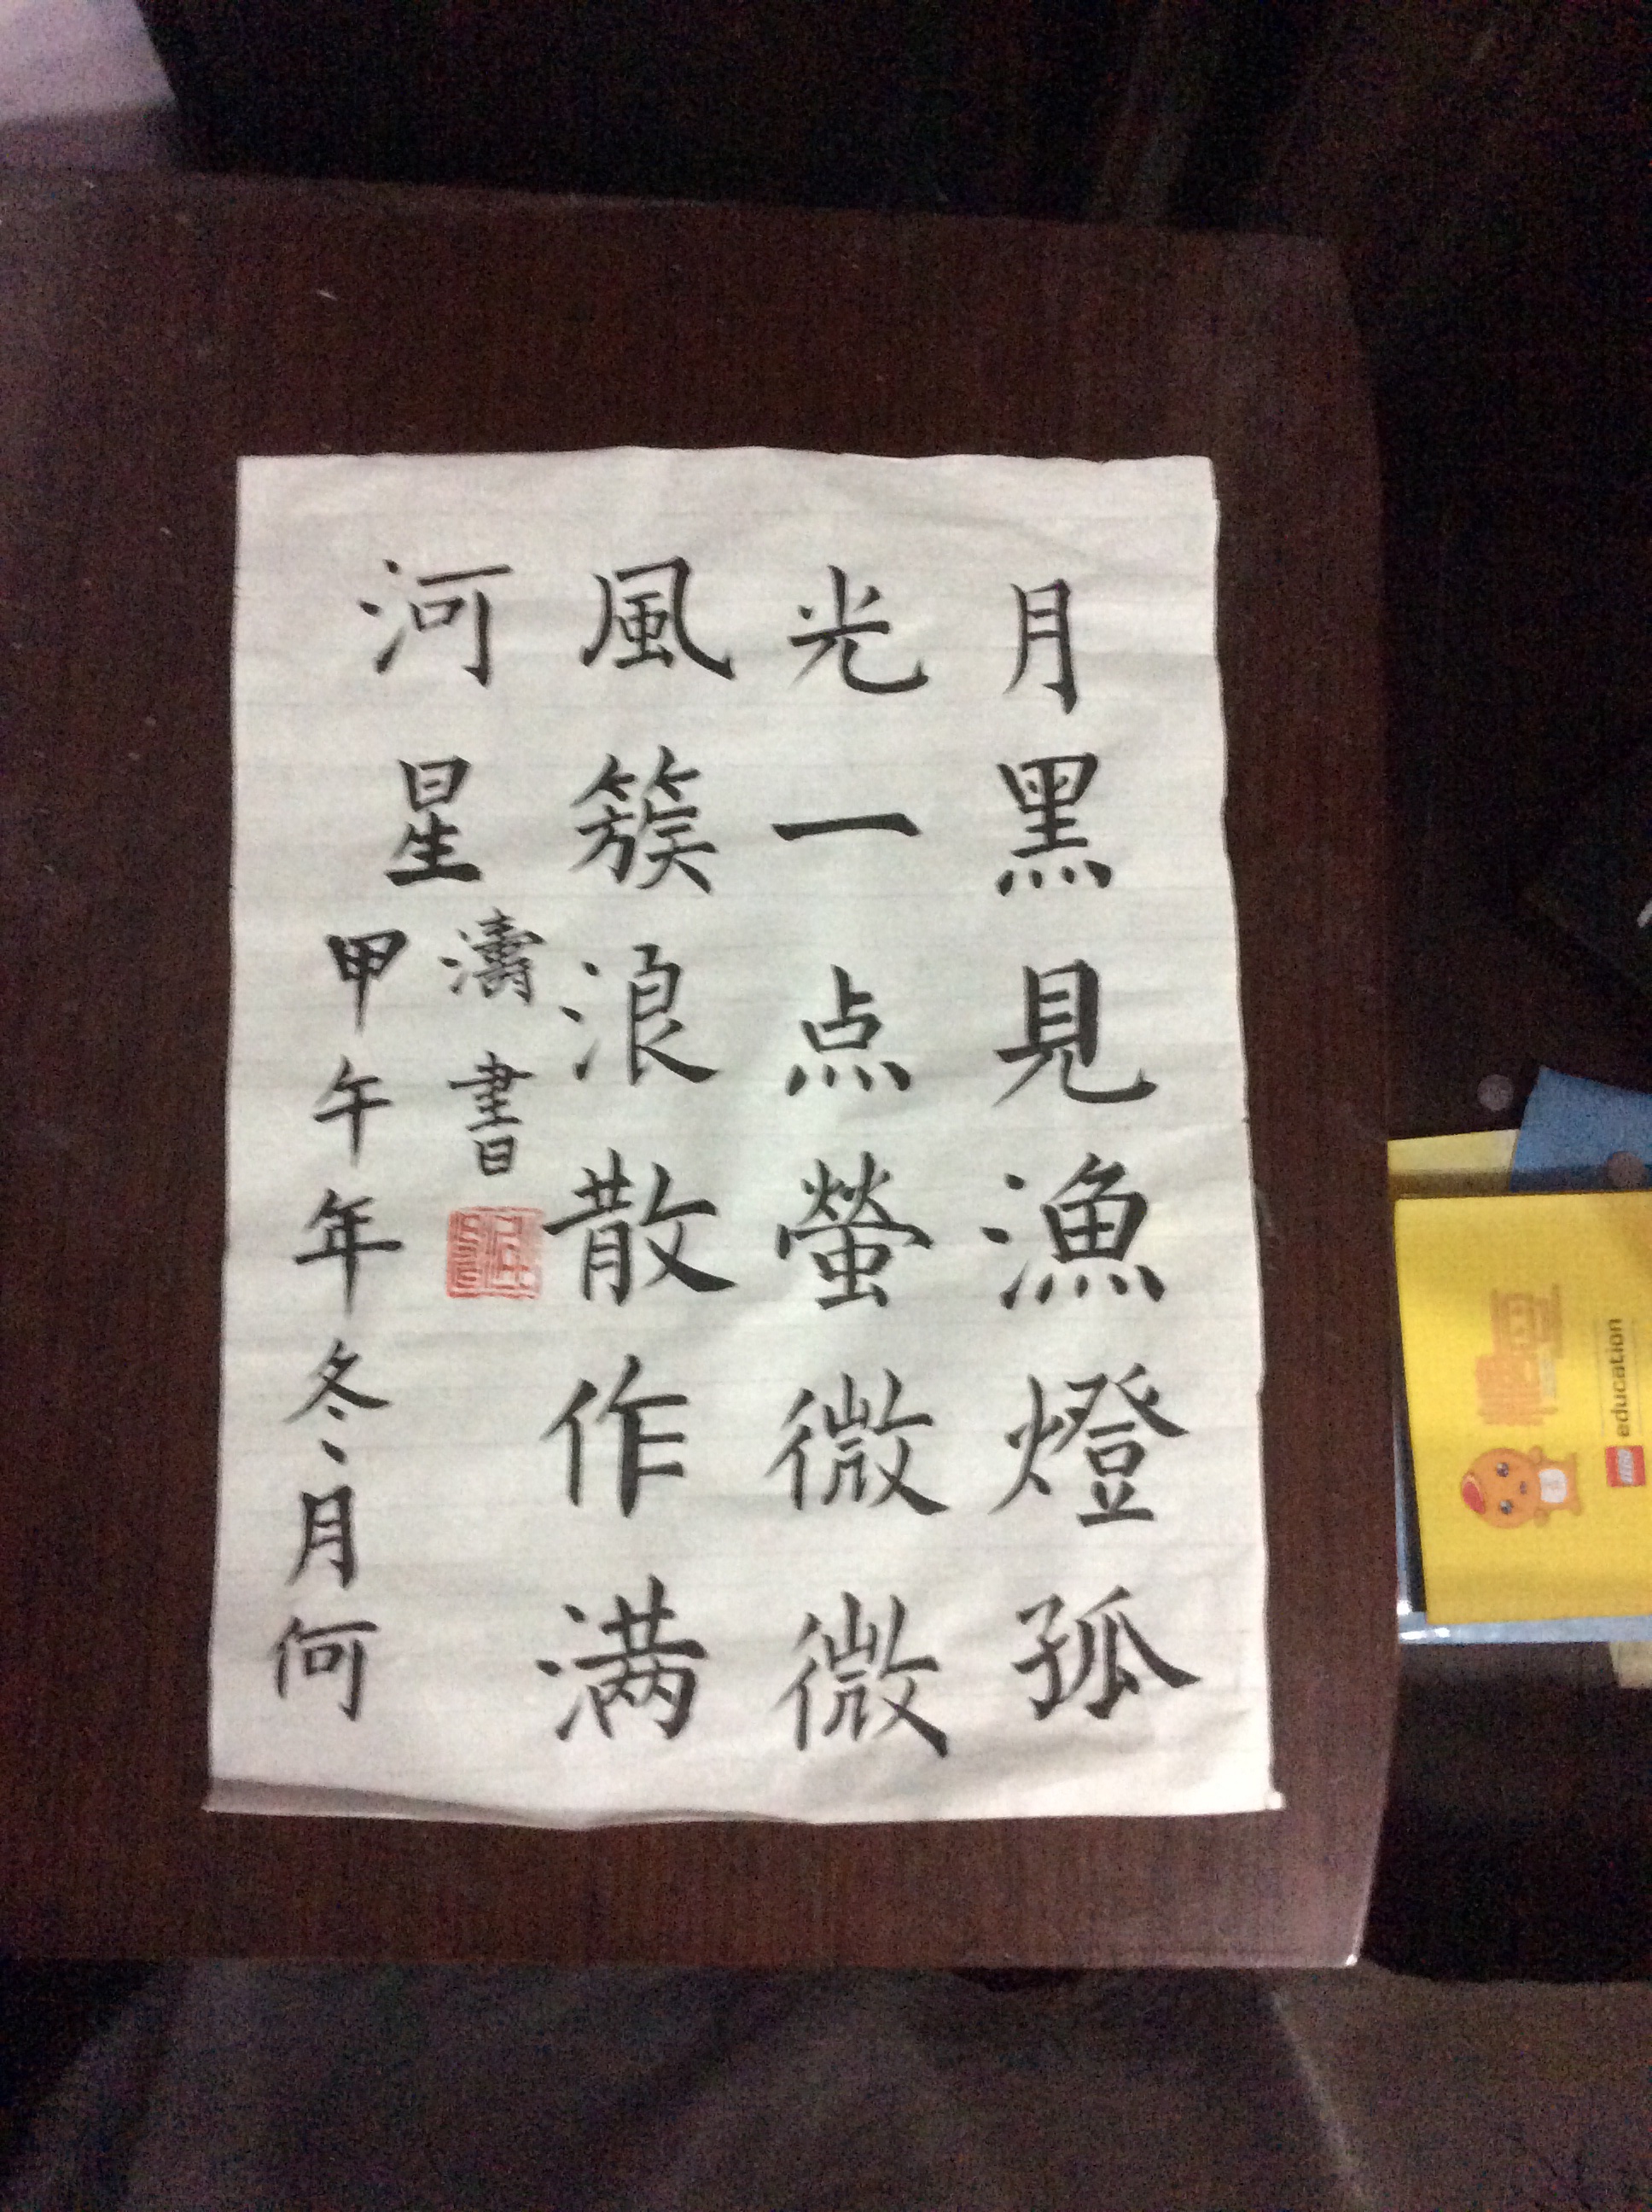 月黑見漁燈孤
光一点螢微微
風簇浪散作满
河星
甲午年冬月何
濤書
education